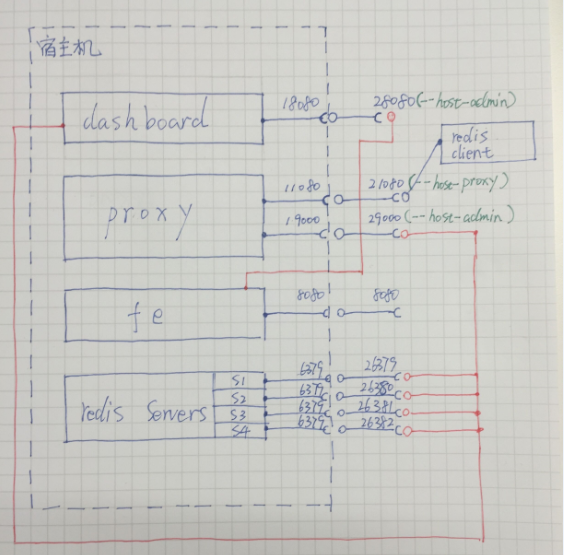 宿主机
dashboard
18080
28080(--host-admin)
redis
client
proxy
11080
21080(--host-proxy)
19000
29000(--host-admin)
fe
8080
8080
redis Servers
S1
6379
26379
S2
6379
26380
S3
6379
26381
S4
6379
26382